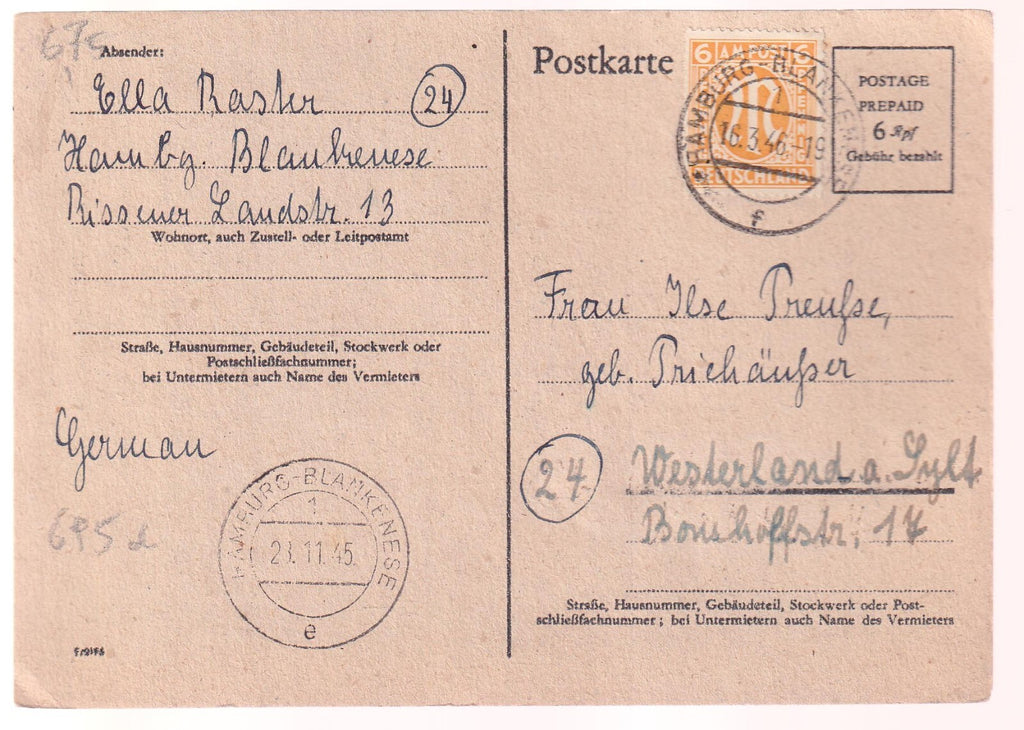 67c
Absender:
Ella Raster
24
Hambg. Blankenese
Rissener Landstr. 13
Wohnort, auch Zustell- oder Leitpostamt
Straße, Hausnummer, Gebäudeteil, Stockwerk oder
Postschließfachnummer;
bei Untermietern auch Name des Vermieters
German
HAMBURG-BLANKENESE
1
23.11.45.
e
Postkarte
6 AM POST 6
DEUTSCHLAND
HAMBURG-BLANKENESE
1
16.3.46.-19
f
POSTAGE
PREPAID
6 Rpf
Gebühr bezahlt
Frau Ilse Preuße,
geb. Prichäußer
24
Westerland a. Sylt
Straße, Hausnummer, Gebäudeteil, Stockwerk oder Post-
schließfachnummer; bei Untermietern auch Name des Vermieters